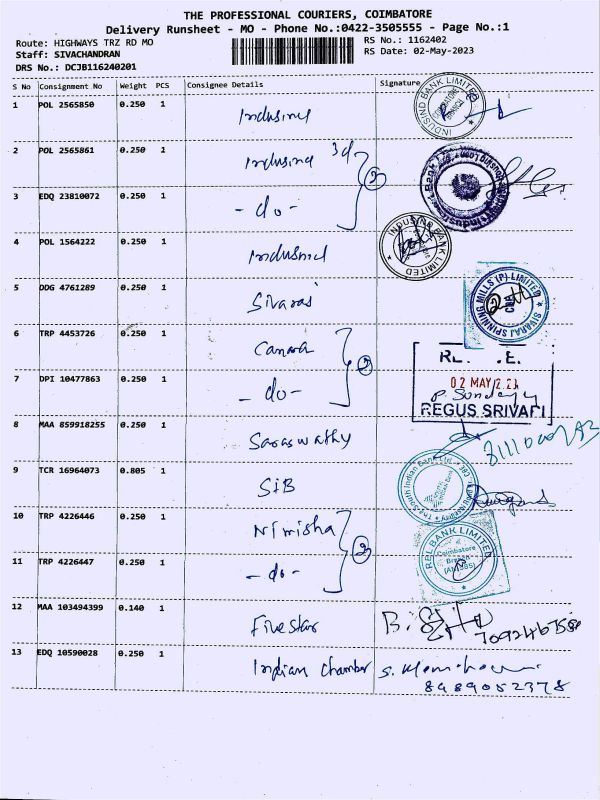 THE PROFESSIONAL COURIERS, COIMBATORE
Delivery Runsheet - MO - Phone No.:0422-3505555 - Page No.:1
Route: HIGHWAYS TRZ RD MO
RS No.: 1162402
Staff: SIVACHANDRAN
RS Date: 02-May-2023
DRS No.: DCJB116240201
S No Consignment No Weight PCS Consignee Details Signature
1 POL 2565850 0.250 1 Indusind
INDUSIND BANK LIMITED
2 POL 2565861 0.250 1 Indusind
3 EDQ 23810072 0.250 1 - do -
2
4 POL 1564222 0.250 1 Indusind
INDUSIND BANK LIMITED
5 DDG 4761289 0.250 1 Sivaraj
SIVARAJ SPINNING MILLS (P) LIMITED
CBE
6 TRP 4453726 0.250 1 Canara
7 DPI 10477863 0.250 1 - do -
2
02 MAY
REGUS SRIVARI
8 MAA 859918255 0.250 1 Saraswathy
9 TCR 16964073 0.805 1 SIB
The South Indian Bank Ltd.
10 TRP 4226446 0.250 1 Nimisha
11 TRP 4226447 0.250 1 - do -
2
RBL BANK LIMITED
Coimbatore
Branch
12 MAA 103494399 0.140 1 Five Star
13 EDQ 10590028 0.250 1 Indian Chamber
8989052378